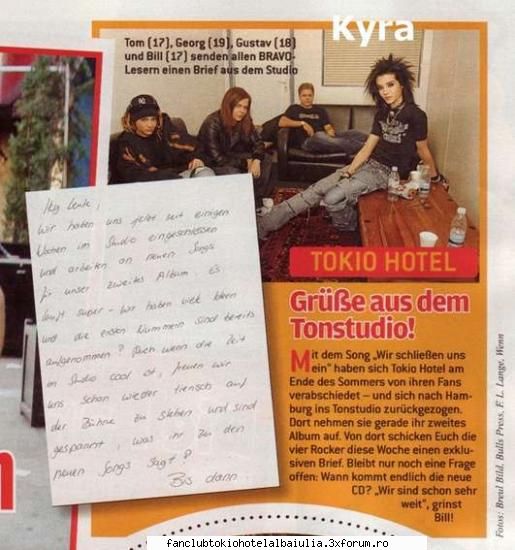 Kyra
Tom (17), Georg (19), Gustav (18)
und Bill (17) senden allen BRAVO-
Lesern einen Brief aus dem Studio
Hey Leute,
wir haben uns jetzt seit einigen
Wochen im Studio eingeschlossen
und arbeiten an neuen Songs
für unser zweites Album. Es
läuft super - wir haben viele Ideen
und die ersten Nummern sind bereits
aufgenommen! Auch wenn die Zeit
im Studio cool ist, freuen wir
uns schon wieder tierisch auf
der Bühne zu stehen und sind
gespannt, was ihr zu den
neuen Songs sagt!
Bis dann
TOKIO HOTEL
Grüße aus dem
Tonstudio!
Mit dem Song „Wir schließen uns
ein“ haben sich Tokio Hotel am
Ende des Sommers von ihren Fans
verabschiedet – und sich nach Ham-
burg ins Tonstudio zurückgezogen.
Dort nehmen sie gerade ihr zweites
Album auf. Von dort schicken Euch die
vier Rocker diese Woche einen exklu-
siven Brief. Bleibt nur noch eine Frage
offen: Wann kommt endlich die neue
CD? „Wir sind schon sehr
weit“, grinst
Bill!
Fotos: Breul Bild, Bulls Press, F. L. Lange, Wenn
fanclubtokiohotelalbaiulia.3xforum.ro